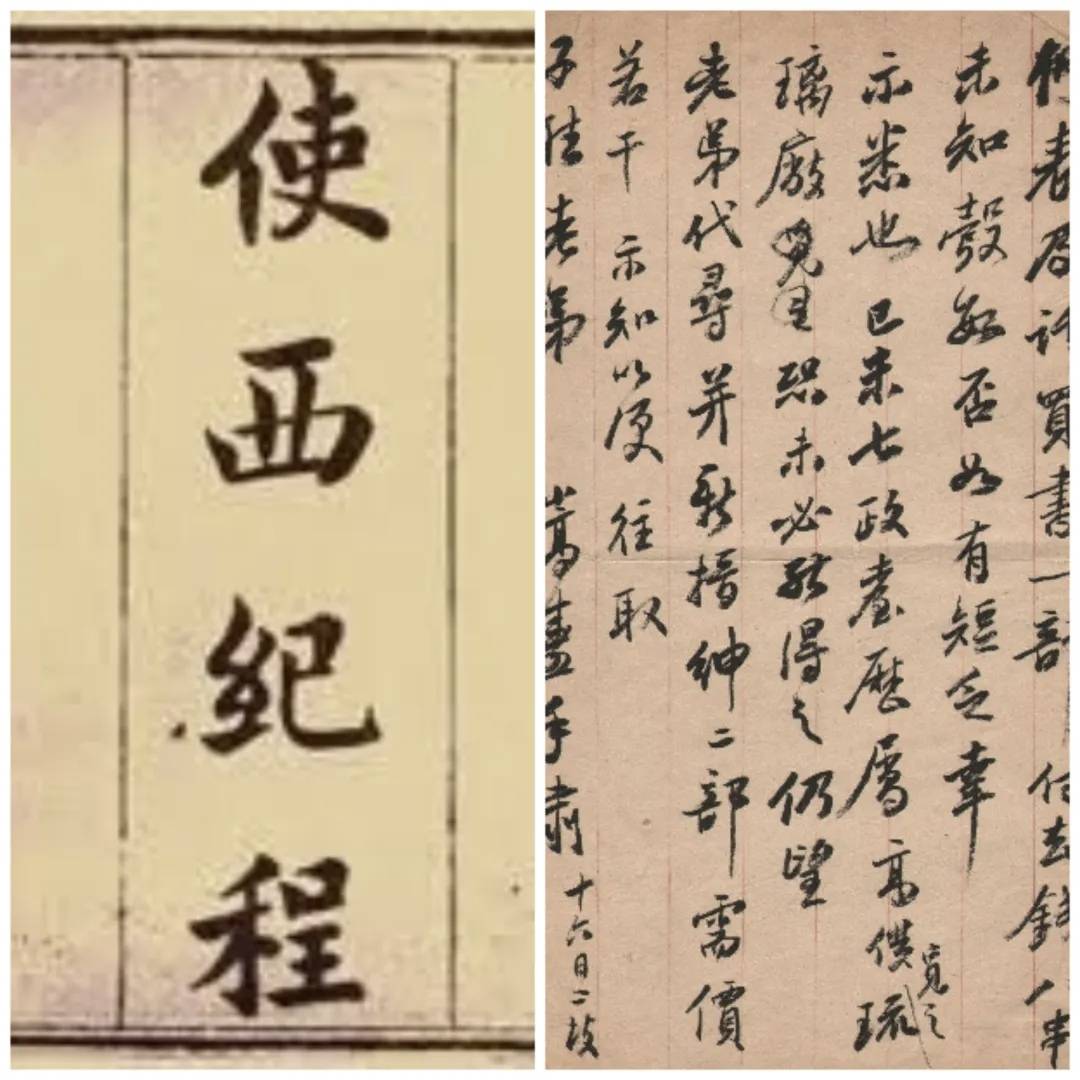 使西紀程
買書一部 付去錢一串
未知彀否如有短乏幸
示悉也 已未七政臺歷屬高僕琉
覓之
璃廠恐未必能得之仍望
老弟代尋并新搢紳二部需價
若干 示知以便 往取
子佳老弟 嵩燾手肅 十六日二鼓